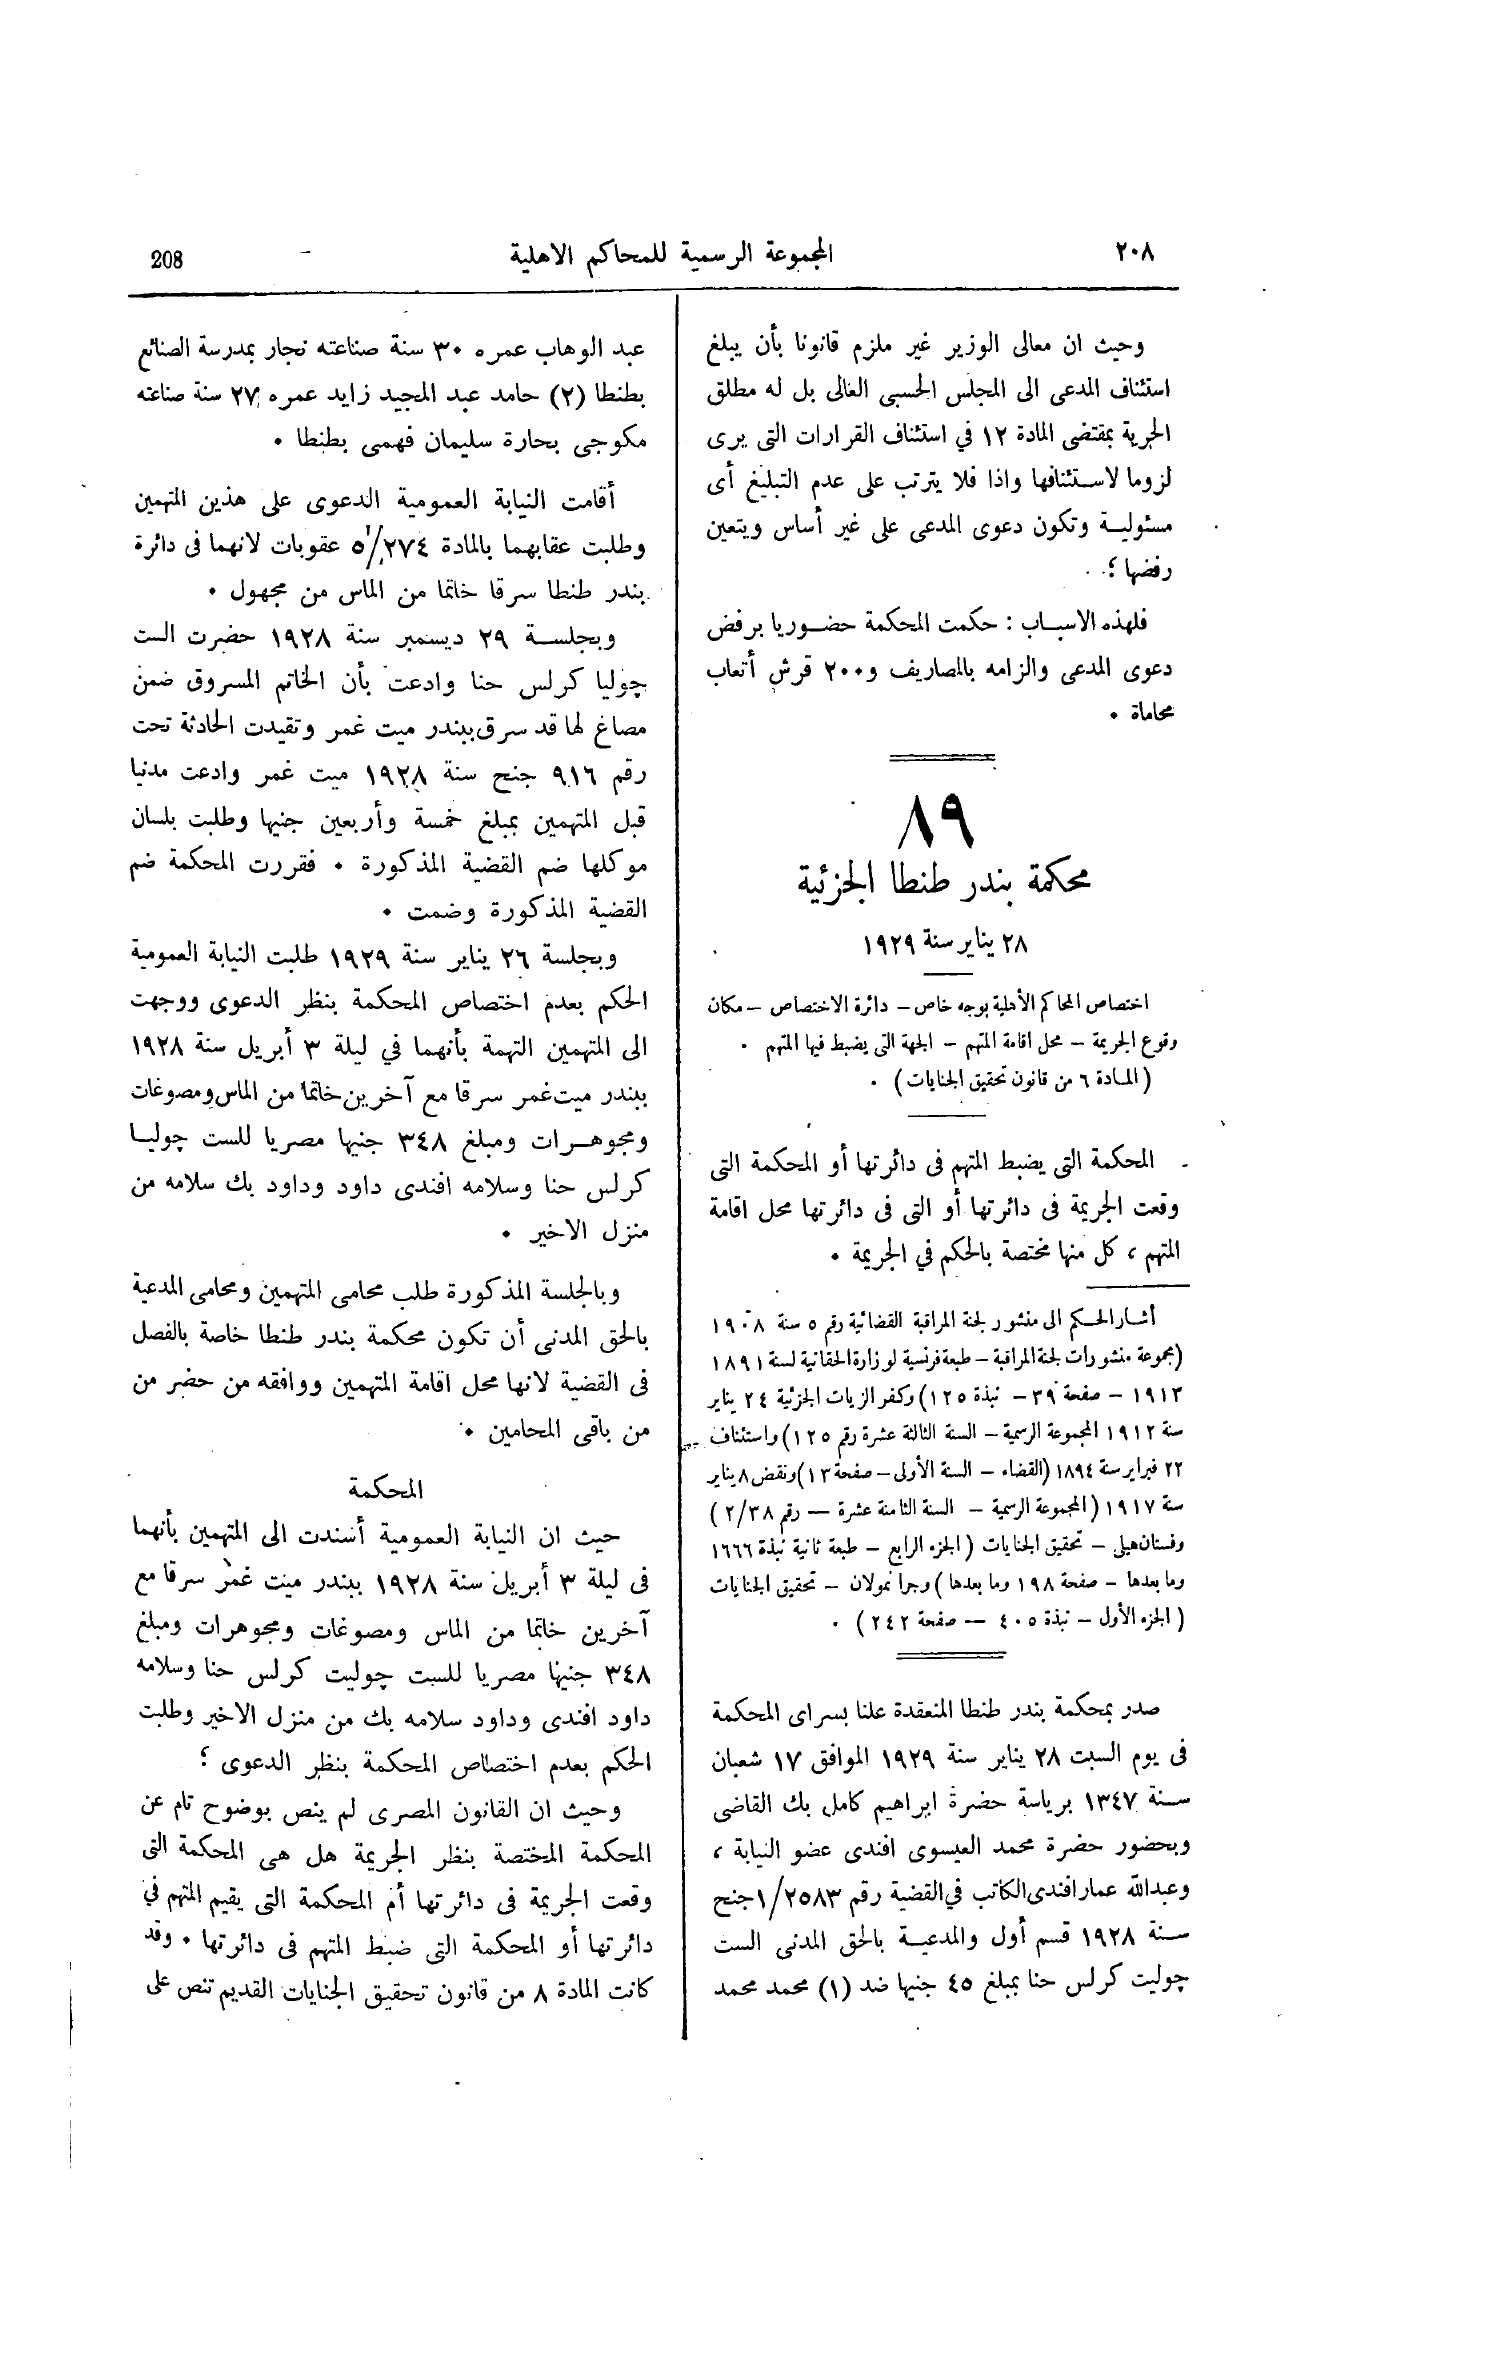 ٢٠٨
المجموعة الرسمية للمحاكم الاهلية
208
وحيث ان معالى الوزير غير ملزم قانونا بأن يبلغ
استئناف المدعى الى المجلس الحسبى العالى بل له مطلق
الحرية بمقتضى المادة ١٢ في استئناف القرارات التى يرى
لزوما لاستئنافها واذا فلا يترتب على عدم التبليغ أى
مسئولية وتكون دعوى المدعى على غير أساس ويتعين
رفضها ؛
فلهذه الاسباب : حكمت المحكمة حضوريا برفض
دعوى المدعى والزامه بالمصاريف و٢٠٠ قرش أتعاب
محاماة •
٨٩
محكمة بندر طنطا الجزئية
٢٨ يناير سنة ١٩٢٩
اختصاص المحاكم الأهلية بوجه خاص – دائرة الاختصاص – مكان
وقوع الجريمة – محل اقامة المتهم – الجهة التى يضبط فيها المتهم •
(المادة ٦ من قانون تحقيق الجنايات) •
المحكمة التى يضبط المتهم فى دائرتها أو المحكمة التى
وقعت الجريمة فى دائرتها أو التى فى دائرتها محل اقامة
المتهم ، كل منها مختصة بالحكم في الجريمة •
أشار الحكم الى منشور لجنة المراقبة القضائية رقم ٥ سنة ١٩٠٨
(مجموعة منشورات لجنة المراقبة – طبعة فرنسية لوزارة الحقانية لسنة ١٨٩١
١٩١٣ – صفحة ٣٩ – نبذة ١٢٥) وكفر الزيات الجزئية ٢٤ يناير
سنة ١٩١٢ المجموعة الرسمية – السنة الثالثة عشرة رقم ١٢٥) واستئناف
٢٢ فبراير سنة ١٨٩٤ (القضاء – السنة الأولى – صفحة ١٣) ونقض ٨ يناير
سنة ١٩١٧ (المجموعة الرسمية – السنة الثامنة عشرة — رقم ٢/٣٨)
وفستان هيلى – تحقيق الجنايات (الجزء الرابع – طبعة ثانية نبذة ١٦٦٦
وما بعدها – صفحة ١٩٨ وما بعدها) وجرا نمولان – تحقيق الجنايات
(الجزء الأول – نبذة ٤٠٥ — صفحة ٢٤٢) •
صدر بمحكمة بندر طنطا المنعقدة علنا بسراى المحكمة
فى يوم السبت ٢٨ يناير سنة ١٩٢٩ الموافق ١٧ شعبان
سنة ١٣٤٧ برياسة حضرة ابراهيم كامل بك القاضى
وبحضور حضرة محمد العيسوى افندى عضو النيابة ،
وعبدالله عمار افندى الكاتب في القضية رقم ١/٢٥٨٣ جنح
سنة ١٩٢٨ قسم أول والمدعية بالحق المدنى الست
چوليت كرلس حنا بمبلغ ٤٥ جنيها ضد (١) محمد محمد
عبد الوهاب عمره ٣٠ سنة صناعته نجار بمدرسة الصنائع
بطنطا (٢) حامد عبد المجيد زايد عمره ٢٧ سنة صناعته
مكوجى بحارة سليمان فهمى بطنطا •
أقامت النيابة العمومية الدعوى على هذين المتهمين
وطلبت عقابهما بالمادة ٥/٢٧٤ عقوبات لانهما فى دائرة
بندر طنطا سرقا خاتما من الماس من مجهول •
وبجلسة ٢٩ ديسمبر سنة ١٩٢٨ حضرت الست
چوليا كرلس حنا وادعت بأن الخاتم المسروق ضمن
مصاغ لها قد سرق ببندر ميت غمر وتقيدت الحادثة تحت
رقم ٩١٦ جنح سنة ١٩٢٨ ميت غمر وادعت مدنيا
قبل المتهمين بمبلغ خمسة وأربعين جنيها وطلبت بلسان
موكلها ضم القضية المذكورة • فقررت المحكمة ضم
القضية المذكورة وضمت •
وبجلسة ٢٦ يناير سنة ١٩٢٩ طلبت النيابة العمومية
الحكم بعدم اختصاص المحكمة بنظر الدعوى ووجهت
الى المتهمين التهمة بأنهما في ليلة ٣ أبريل سنة ١٩٢٨
ببندر ميت غمر سرقا مع آخرين خاتما من الماس ومصوغات
ومجوهرات ومبلغ ٣٤٨ جنيها مصريا للست چوليا
كرلس حنا وسلامه افندى داود وداود بك سلامه من
منزل الاخير •
وبالجلسة المذكورة طلب محامى المتهمين ومحامى المدعية
بالحق المدنى أن تكون محكمة بندر طنطا خاصة بالفصل
فى القضية لانها محل اقامة المتهمين ووافقه من حضر من
من باقى المحامين •
المحكمة
حيث ان النيابة العمومية أسندت الى المتهمين بأنهما
فى ليلة ٣ أبريل سنة ١٩٢٨ ببندر ميت غمر سرقا مع
آخرين خاتما من الماس ومصوغات ومجوهرات ومبلغ
٣٤٨ جنيها مصريا للست چوليت كرلس حنا وسلامه
داود افندى وداود سلامه بك من منزل الاخير وطلبت
الحكم بعدم اختصاص المحكمة بنظر الدعوى ؛
وحيث ان القانون المصرى لم ينص بوضوح تام عن
المحكمة المختصة بنظر الجريمة هل هى المحكمة التى
وقعت الجريمة فى دائرتها أم المحكمة التى يقيم المتهم في
دائرتها أو المحكمة التى ضبط المتهم فى دائرتها • وقد
كانت المادة ٨ من قانون تحقيق الجنايات القديم تنص على